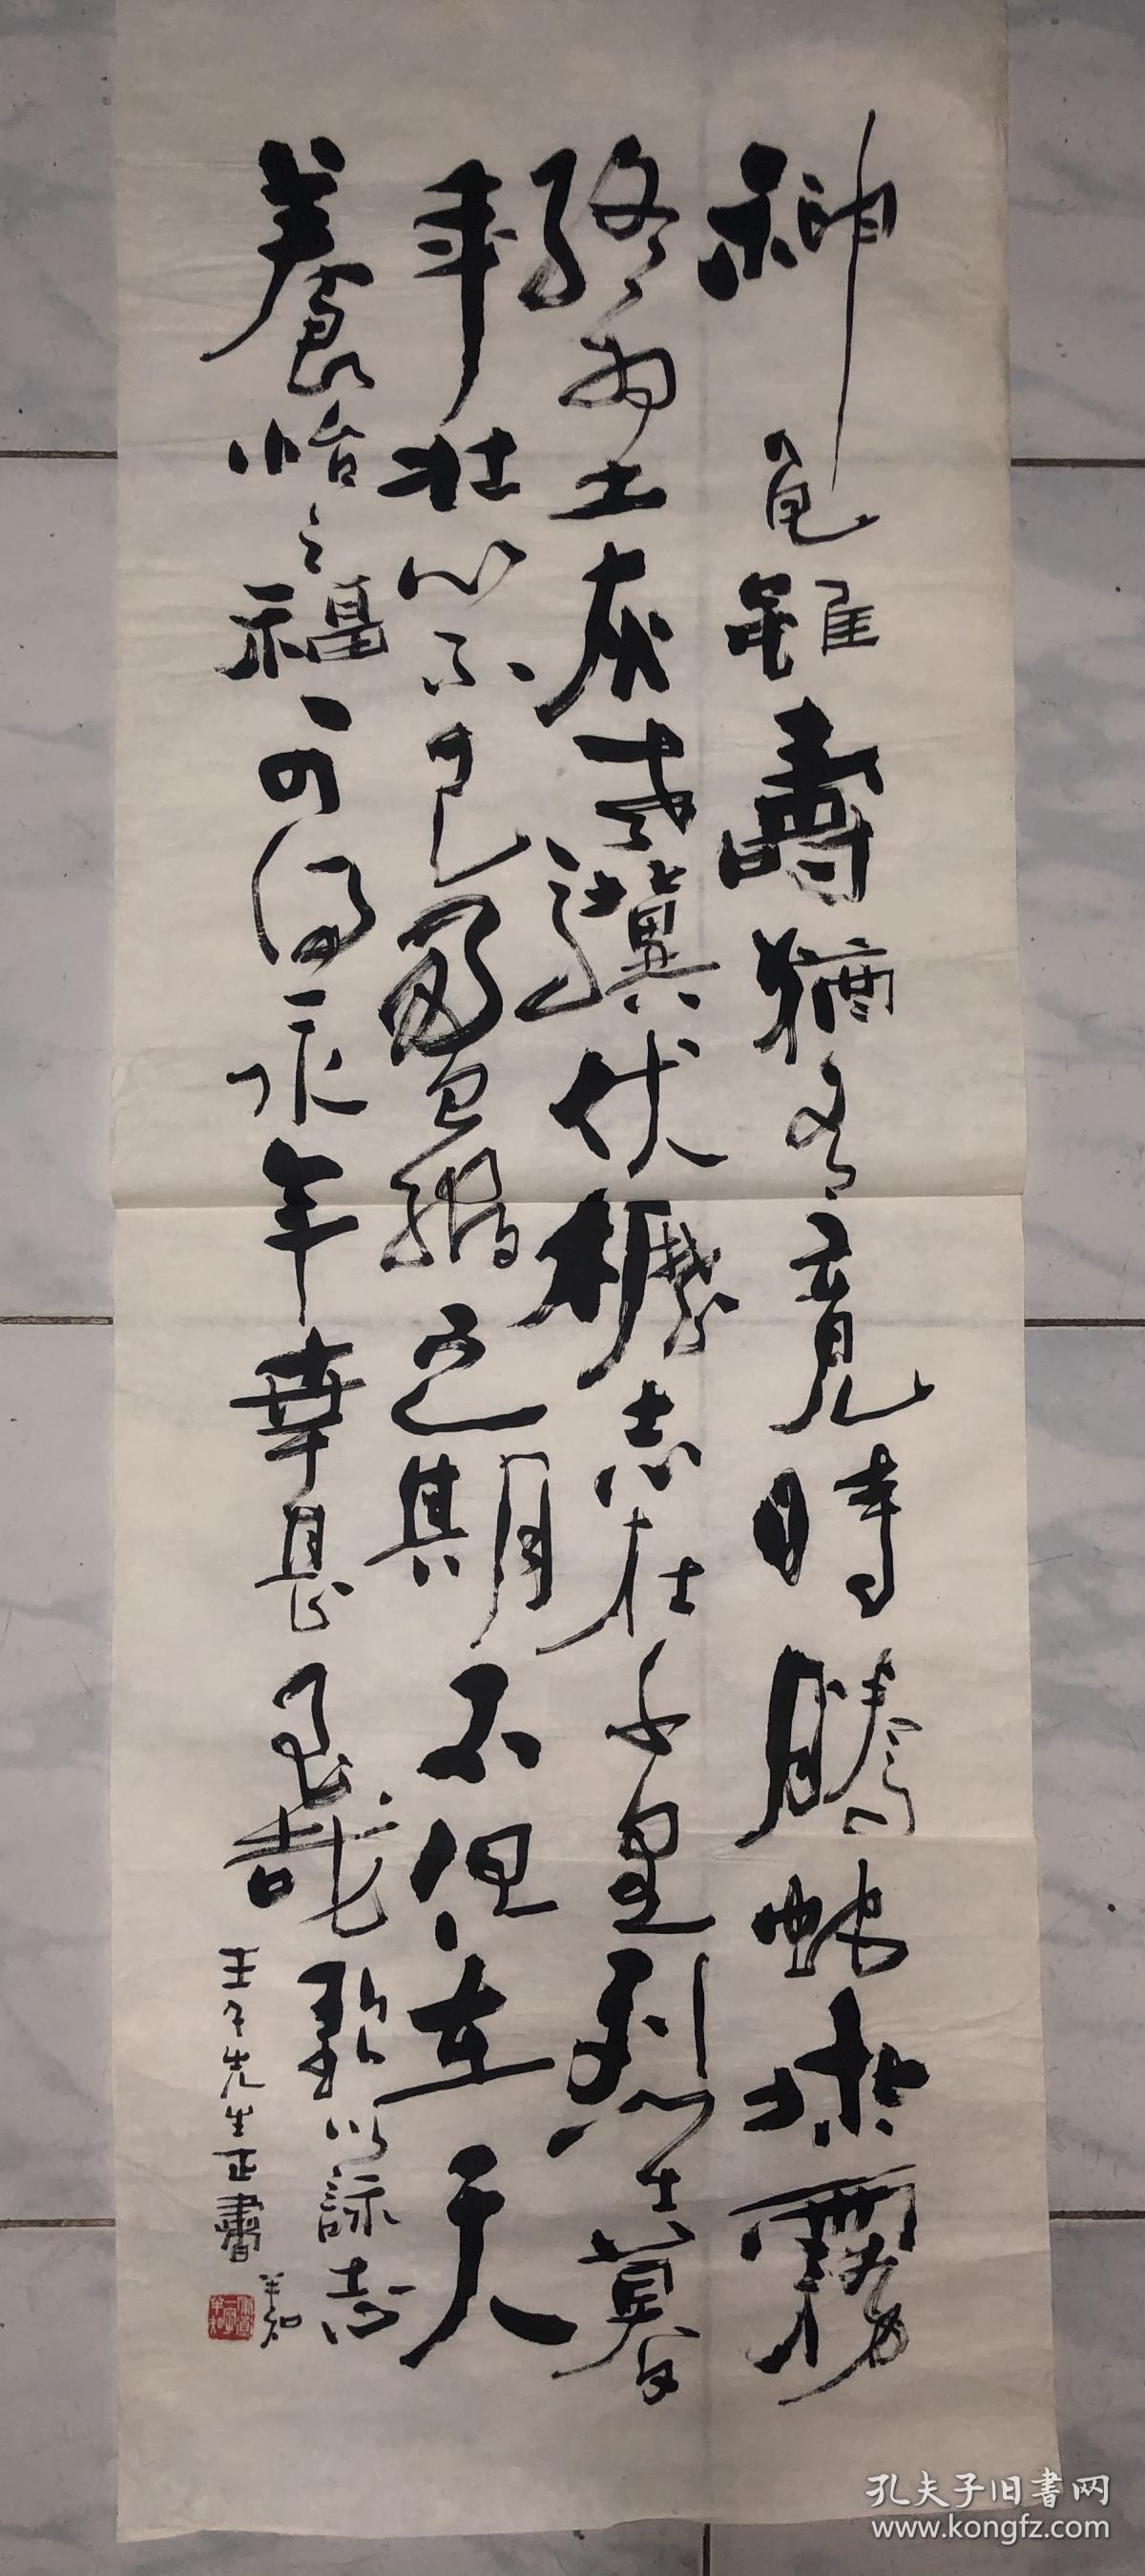 神龜雖壽猶有竟時騰蛇乘霧
終為土灰老驥伏櫪志在千里烈士暮
年壯心不已盈縮之期不但在天
養怡之福可得永年幸甚至哉
歌以詠志
壬午先生正書
孔夫子旧书网
www.kongfz.com